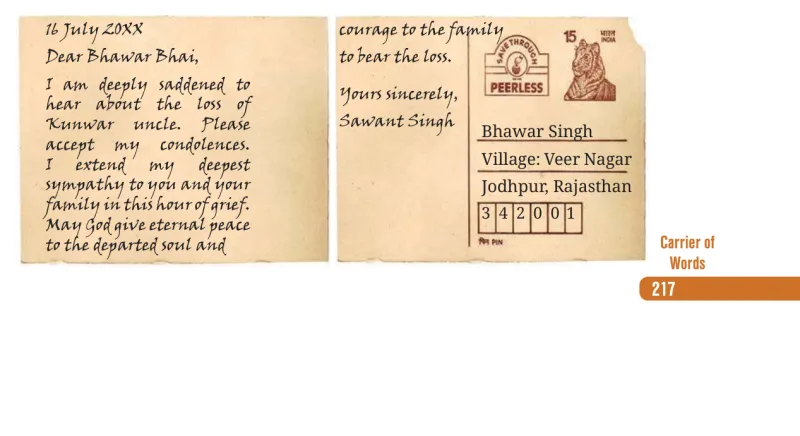 16 July 20XX
Dear Bhawar Bhai,
I am deeply saddened to
hear about the loss of
Kunwar uncle. Please
accept my condolences.
I extend my deepest
sympathy to you and your
family in this hour of grief.
May God give eternal peace
to the departed soul and
courage to the family
to bear the loss.
Yours sincerely,
Sawant Singh
SAVE THROUGH
PEERLESS
15 भारत
INDIA
Bhawar Singh
Village: Veer Nagar
Jodhpur, Rajasthan
3 4 2 0 0 1
पिन PIN
Carrier of
Words
217